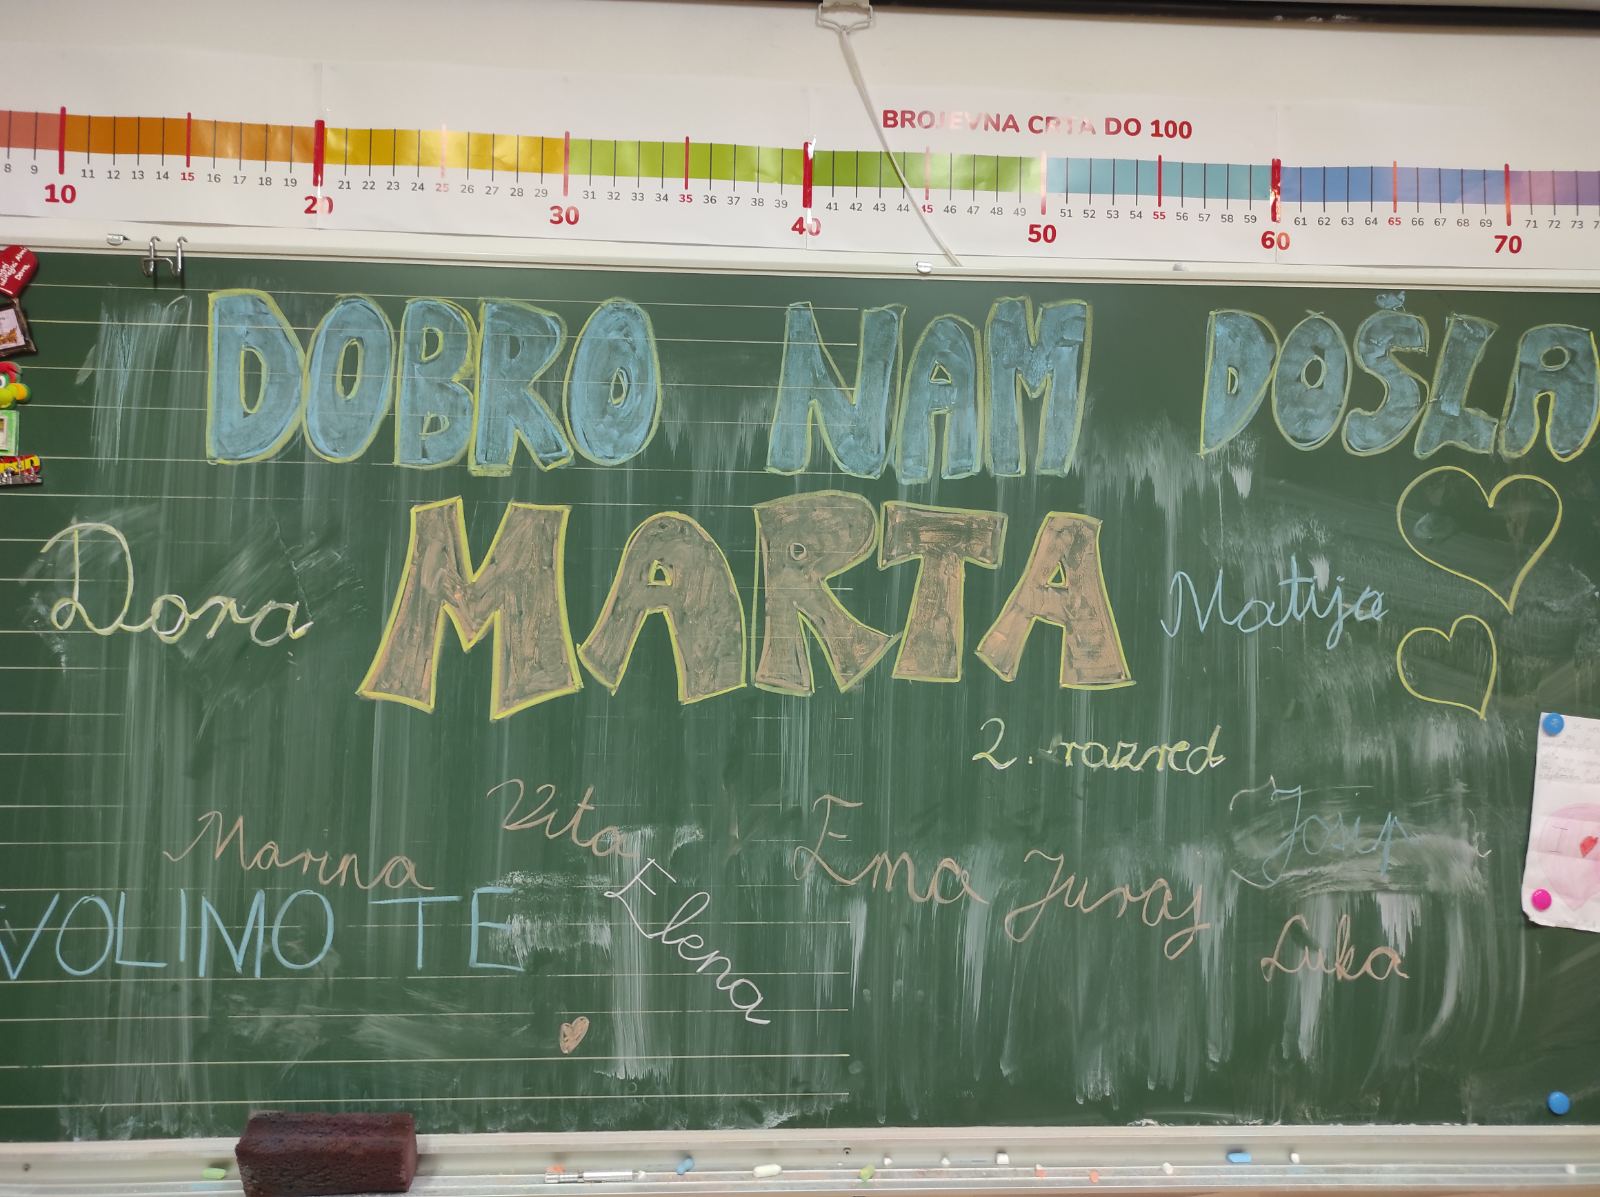 BROJEVNA CRTA DO 100
8 9 10 11 12 13 14 15 16 17 18 19 20 21 22 23 24 25 26 27 28 29 30 31 32 33 34 35 36 37 38 39 40 41 42 43 44 45 46 47 48 49 50 51 52 53 54 55 56 57 58 59 60 61 62 63 64 65 66 67 68 69 70 71 72 73
DOBRO NAM DOŠLA
MARTA
Dora
Matija
2. razred
Vita
Josip
Marina
Ema
Juraj
VOLIMO TE
Elena
Luka